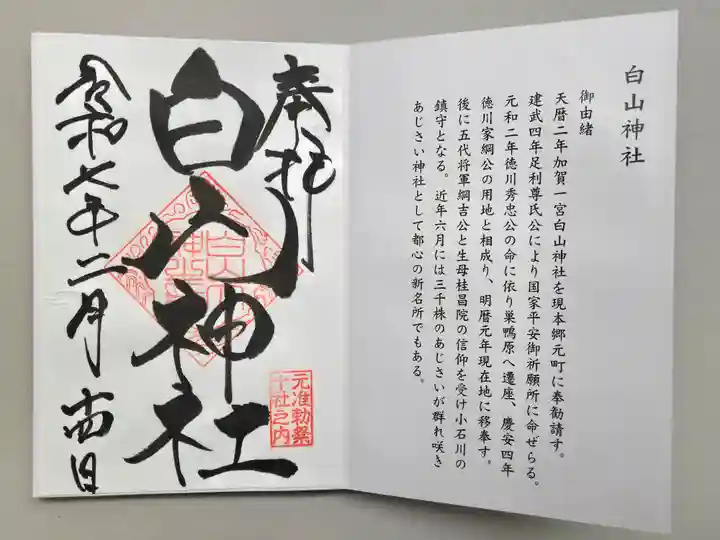 白山神社
御由緒
天暦二年加賀一宮白山神社を現本郷元町に奉勧請す。
建武四年足利尊氏公により国家平安御祈願所に命ぜらる。
元和二年徳川秀忠公の命に依り巣鴨原へ遷座、慶安四年
徳川家綱公の用地と相成り、明暦元年現在地に移奉す。
後に五代将軍綱吉公と生母桂昌院の信仰を受け小石川の
鎮守となる。近年六月には三千株のあじさいが群れ咲き
あじさい神社として都心の新名所でもある。
奉拝
白山神社
元准勅祭
十社之内
令和七年二月十四日